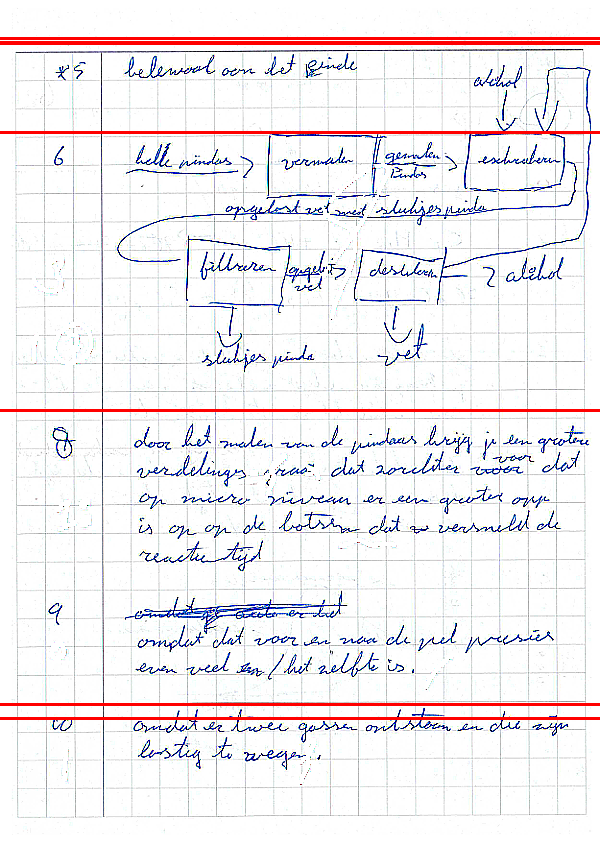 *5 helemaal aan het einde
alcohol
6 hele pindas vermalen gemalen Pindas extraheren
opgelost vet met stukjes pinda
filtreren opgelost vet destileren alcohol
stukjes pinda vet
8 door het malen van de pindaas krijg je een grotere
verdelings graat dat zorchter voor dat
op micro niveau er een groter opp
is op op de botsen dat versneld de
reactie tijd
9
omdat dat voor en naa de pijl presies
even veel / het zelfde is.
10 omdat er twee gassen ontstaan en die zijn
lastig te wegen.